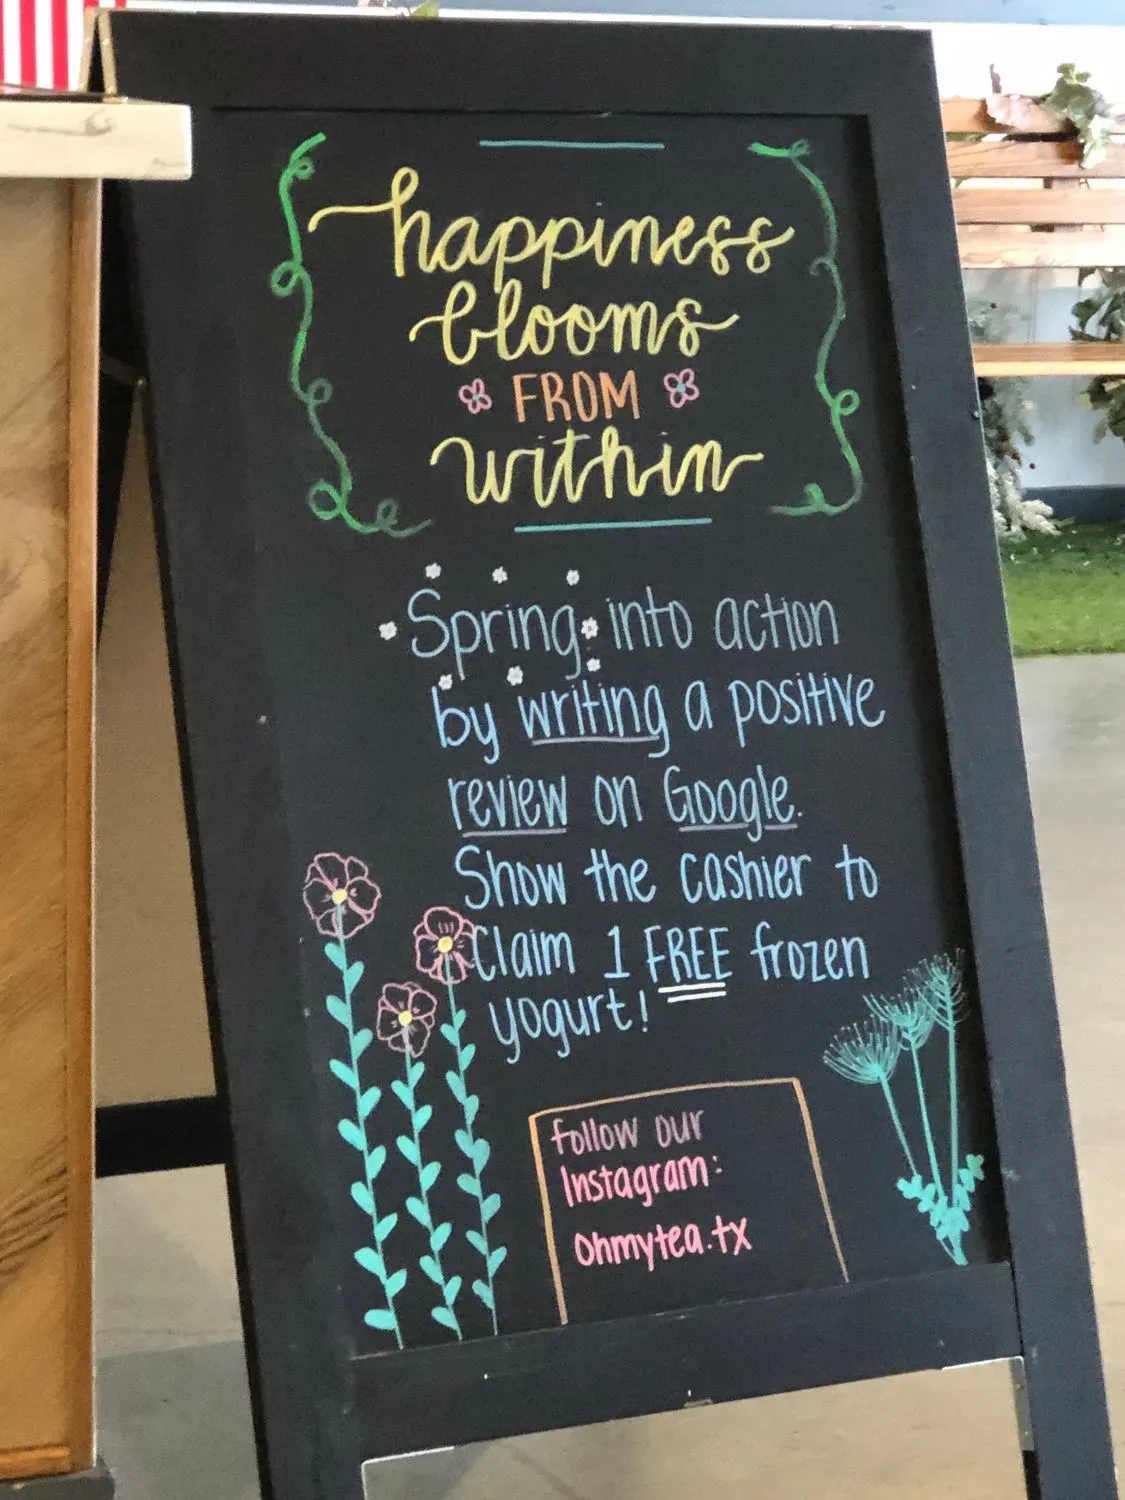 happiness
blooms
FROM
within
Spring into action
by writing a positive
review on Google.
Show the cashier to
Claim 1 FREE frozen
yogurt!
follow our
Instagram:
ohmytea.tx